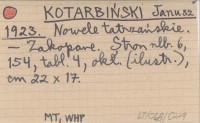 KOTARBIŃSKI Janusz
1923. Nowele tatrzańskie.
- Zakopane. Stron nlb. 6,
154, tabl. 4, okł. (ilustr.),
cm 22 x 17.
MT, WHP